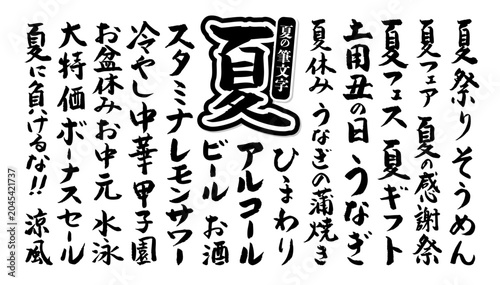 夏祭り そうめん
夏フェア 夏の感謝祭
夏フェス 夏ギフト
土用丑の日 うなぎ
夏休み うなぎの蒲焼き
夏の筆文字
夏
ひまわり
アルコール
ビール お酒
スタミナ レモンサワー
冷やし中華 甲子園
お盆休み お中元 水泳
大特価 ボーナスセール
夏に負けるな!! 涼風
2045421737